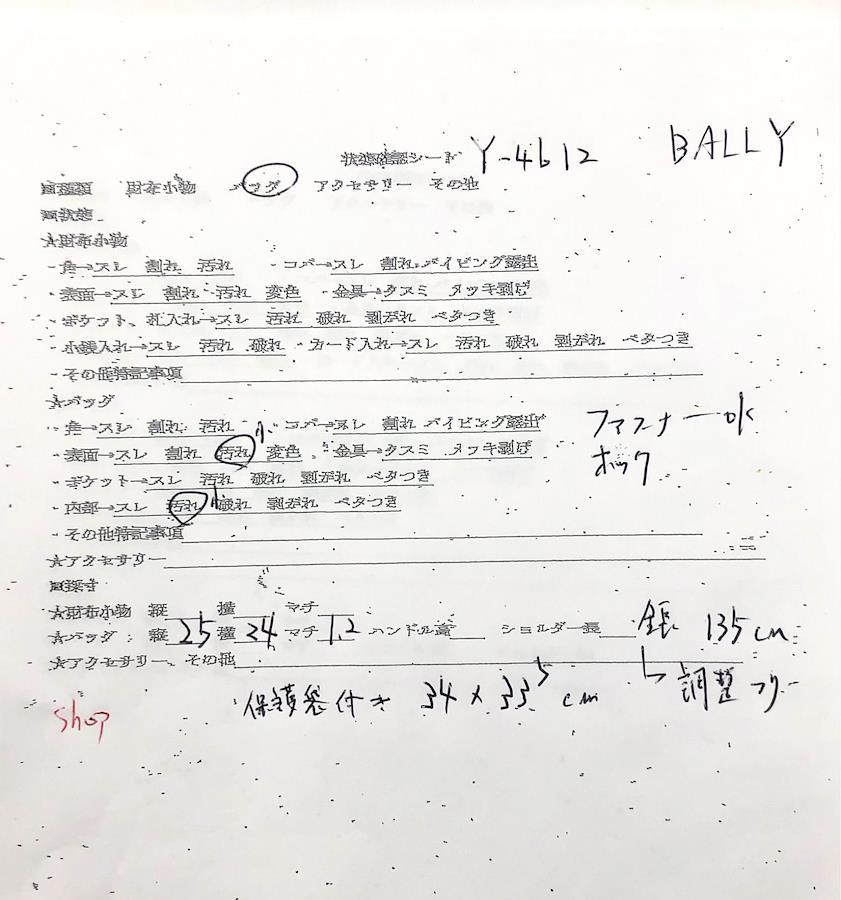 状態確認シート Y-4612 BALLY
■種類 財布小物 バッグ アクセサリー その他
■状態
★財布小物
・角→スレ 割れ 汚れ ・コバ→スレ 割れ パイピング露出
・表面→スレ 割れ 汚れ 変色 ・金具→クスミ メッキ剥げ
・ポケット、札入れ→スレ 汚れ 破れ 剥がれ ベタつき
・小銭入れ→スレ 汚れ 破れ ・カード入れ→スレ 汚れ 破れ 剥がれ ベタつき
・その他特記事項
★バッグ
・角→スレ 割れ 汚れ ・コバ→スレ 割れ パイピング露出 ファスナー ok
・表面→スレ 割れ 汚れ 小 変色 ・金具→クスミ メッキ剥げ ホック
・ポケット→スレ 汚れ 破れ 剥がれ ベタつき
・内部→スレ 汚れ 小 破れ 剥がれ ベタつき
・その他特記事項
★アクセサリー
■採寸
★財布小物 縦 横 マチ
★バッグ : 縦 25 横 34 マチ 1.2 ハンドル高 ショルダー長 全長 135cm
★アクセサリー、その他 調整フリー
保護袋付き 34×33.5cm
shop